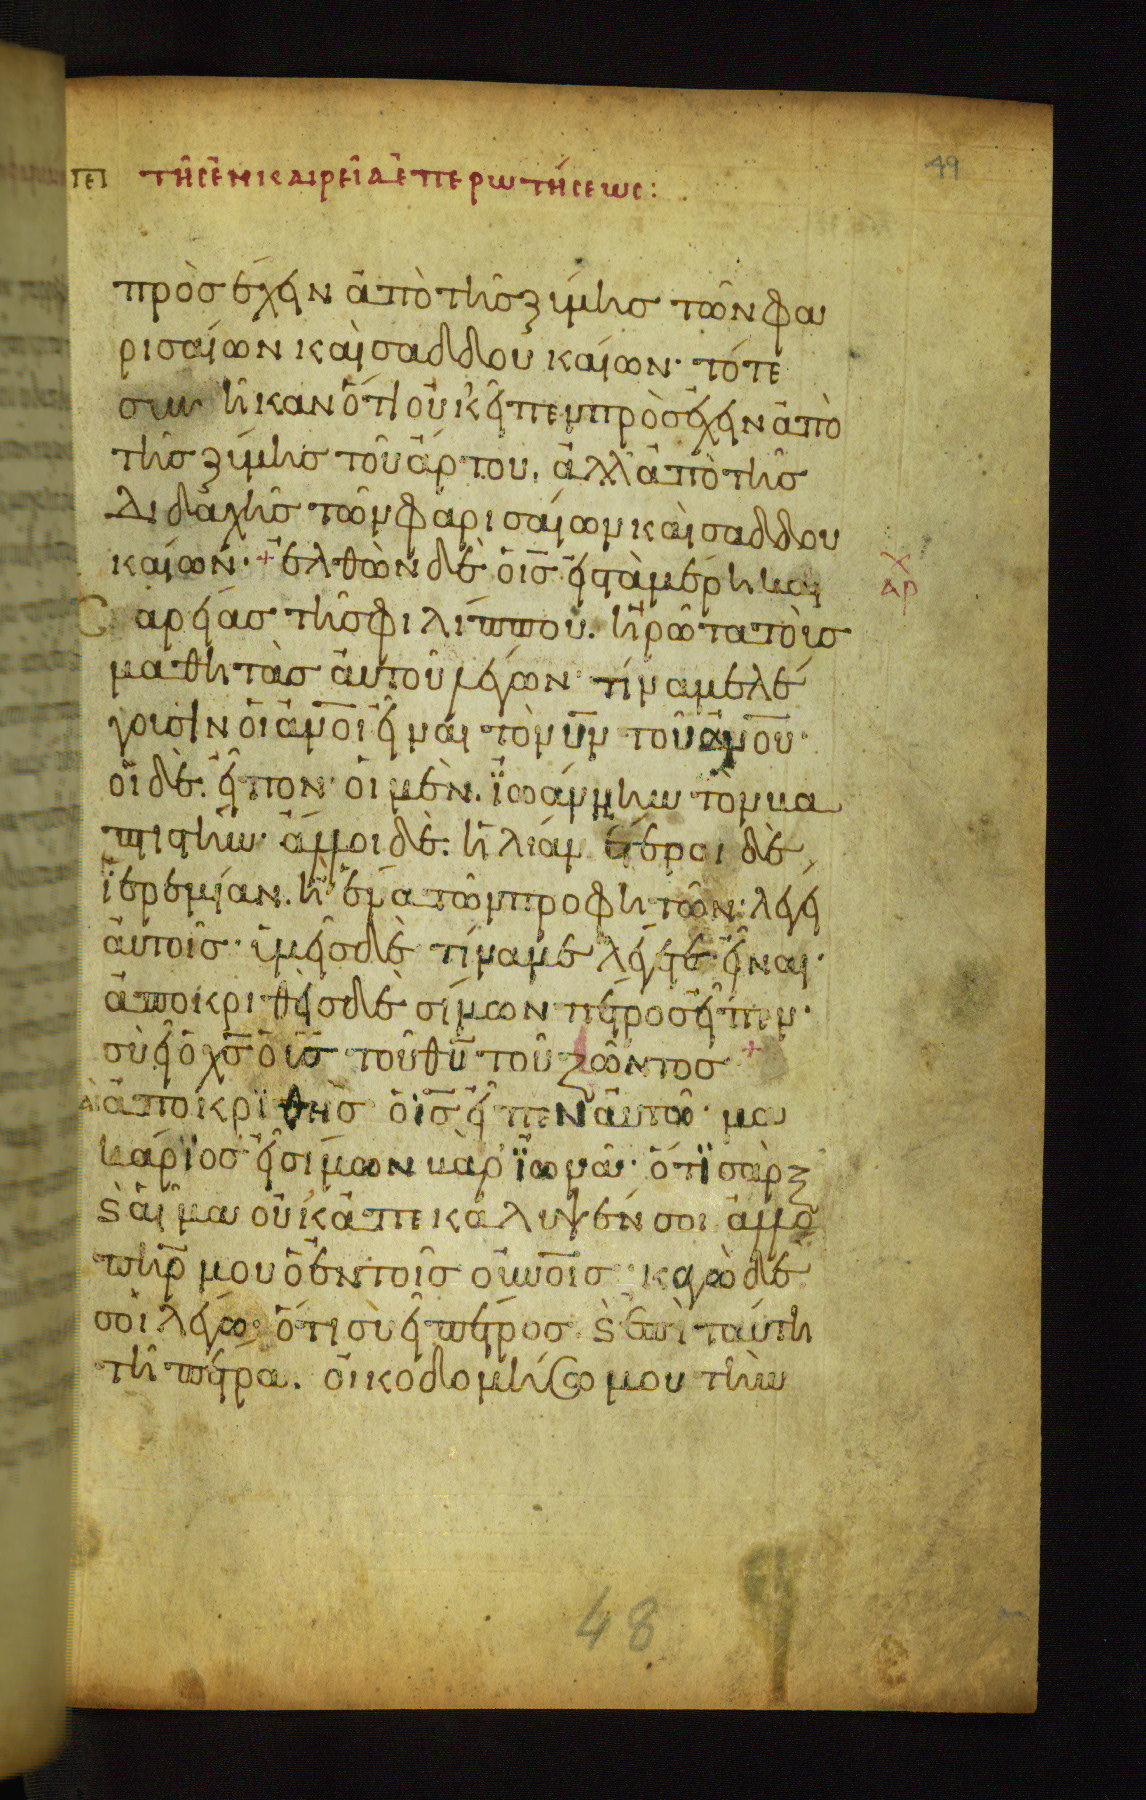 πε τῆς ἐν καιρεία ἐπερωτήσεως:
49
προσέχειν ἀπὸ τῆς ζύμης τῶν φα
ρισαίων καὶ σαδδουκαίων· τότε
συνῆκαν ὅτι οὐκ εἶπεν προσέχειν ἀπὸ
τῆς ζύμης τοῦ ἄρτου. ἀλλ' ἀπὸ τῆς
διδαχῆς τῶν φαρισαίων καὶ σαδδου
καίων· + ἐλθὼν δὲ ὁ ις εἰς τὰ μέρη και
αρ
σαρείας τῆς φιλίππου. ἠρώτα τοὺς
μαθητὰς αὐτοῦ λέγων· τίνα με λέ
γουσιν οἱ ανοι εἶναι τὸν υν τοῦ ανου·
οἱ δὲ. εἶπον· οἱ μὲν. ἰωάννην τὸν βα
πτιστήν· ἄλλοι δὲ. ἠλίαν ἕτεροι δὲ
ἱερεμίαν. ἢ ἕνα τῶν προφητῶν· λέγει
αὐτοῖς· ὑμεῖς δὲ τίνα με λέγετε εἶναι·
ἀποκριθεὶς δὲ σίμων πέτρος εἶπεν·
σὺ εἶ ὁ χς ὁ υς τοῦ θυ τοῦ ζῶντος +
ἀποκριθεὶς ὁ ις εἶπεν αὐτῶ· μα
κάριος εἶ σίμων βὰρ ἰωνᾶ· ὅτι σὰρξ
ϗ αἷμα οὐκ ἀπεκάλυψέν σοι ἀλλ' ὁ
πηρ μου ὁ ἐν τοῖς ουνοις· κἀγὼ δέ
σοι λέγω· ὅτι σὺ εἶ πέτρος ϗ ἐπὶ ταύτη
τῆ πέτρα. οἰκοδομήσω μου τὴν
48